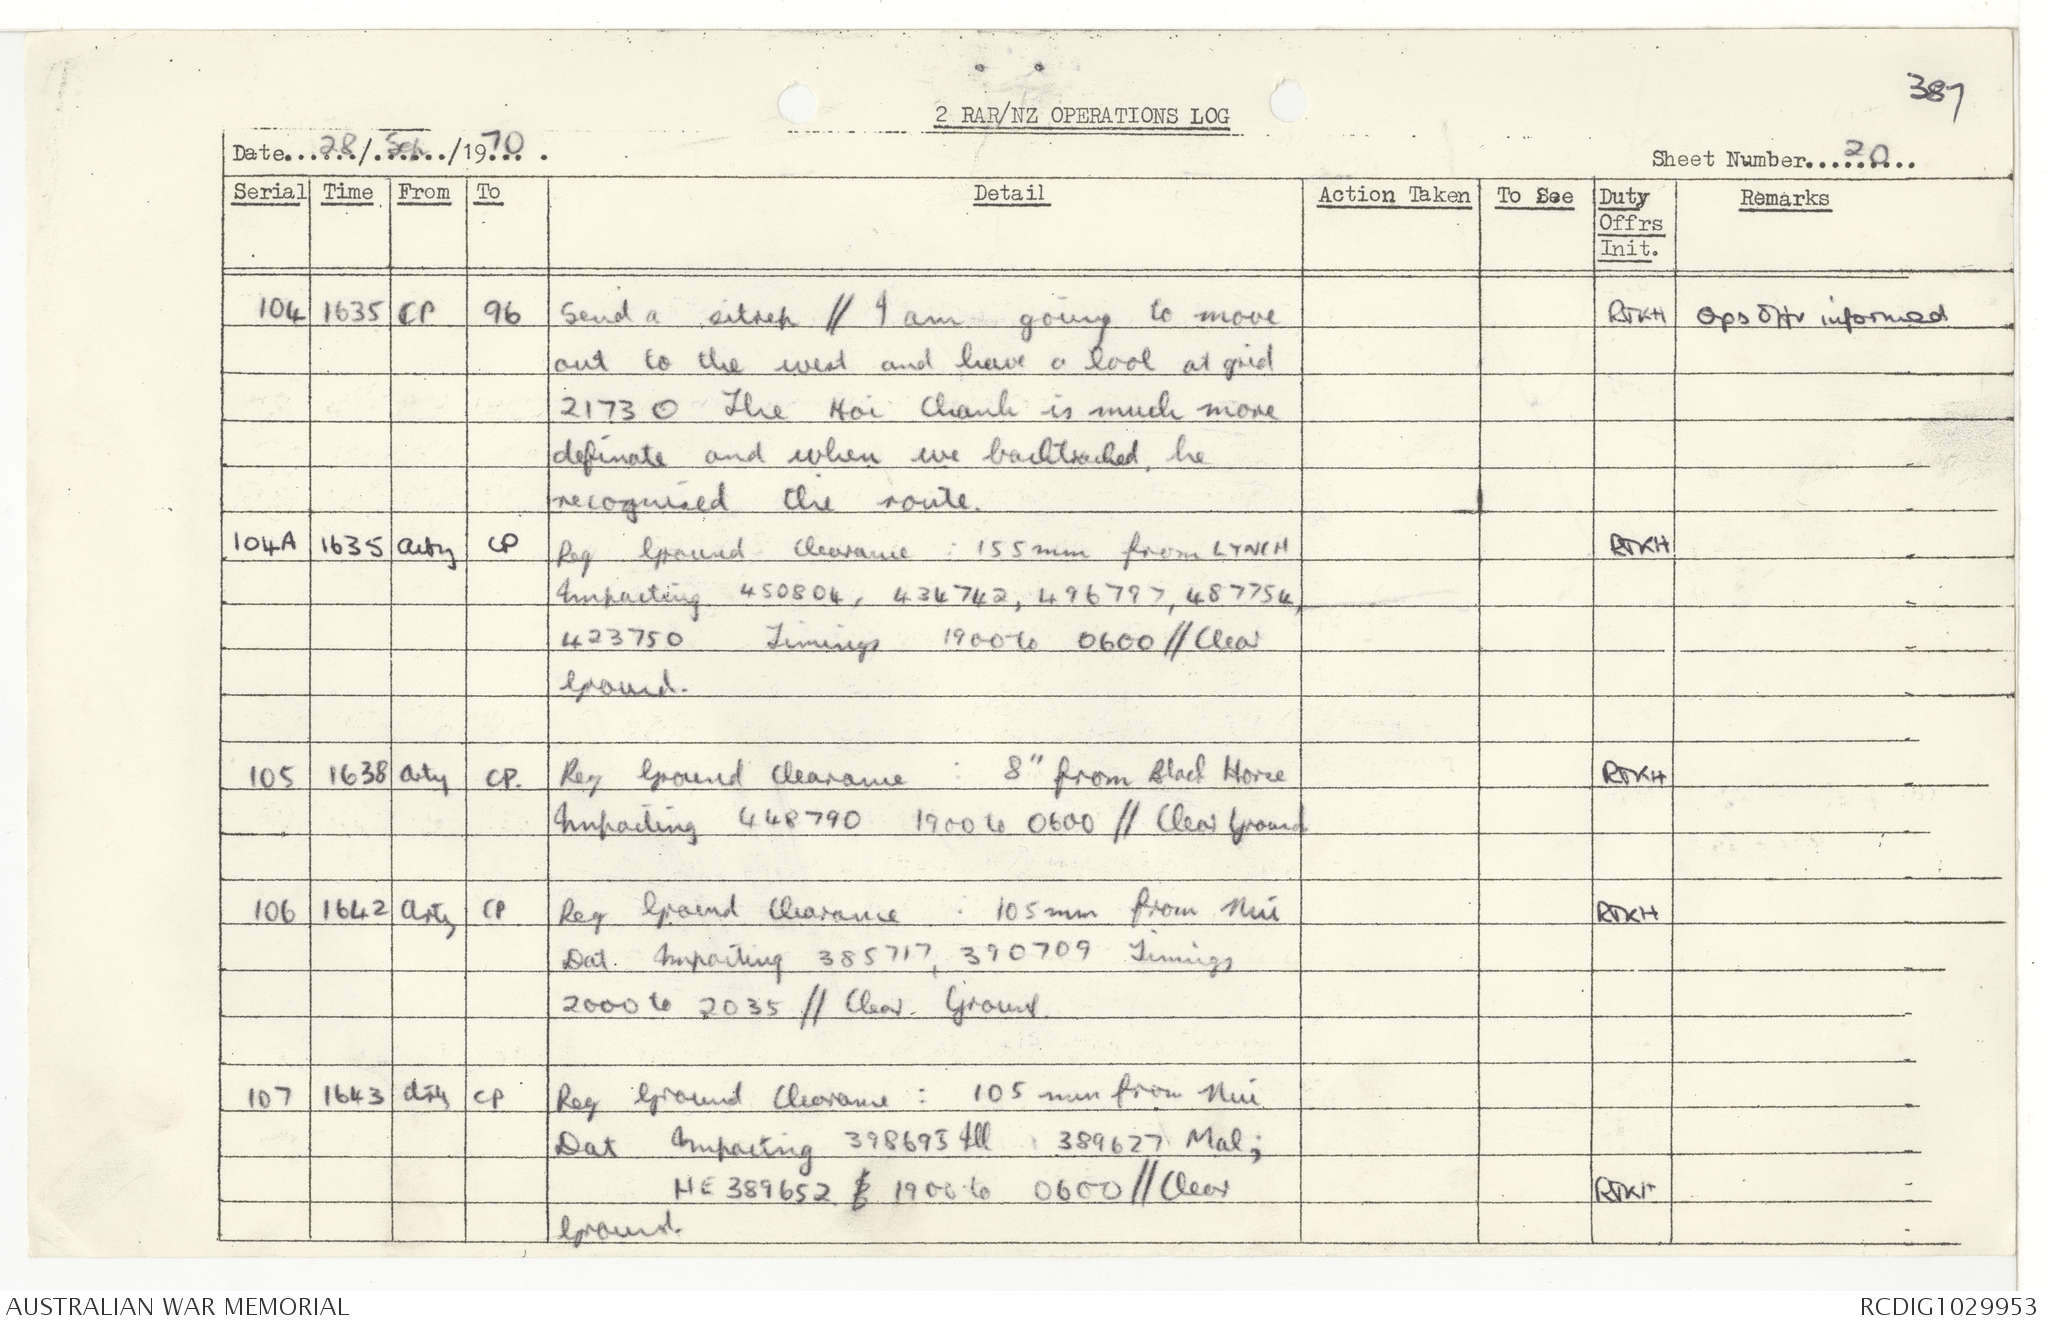 387
2 RAR/NZ OPERATIONS LOG
Date...28.../.Sep.../1970...
Sheet Number...20...
Serial Time From To Detail Action Taken To See Duty Offrs Init. Remarks
104 1635 CP 96 Send a sitrep // I am going to move RJKH Ops Offr informed
out to the west and have a look at grid
21730 The Hoi Chanh is much more
definate and when we backtracked, he
recognised the route.
104A 1635 Arty CP Req Ground Clearance : 155mm from LYNCH RJKH
Impacting 450804, 434742, 496797, 487754,
423750 Timings 1900 to 0600 // Clear
Ground.
105 1638 Arty CP. Req Ground Clearance : 8" from Black Horse RJKH
Impacting 448790 1900 to 0600 // Clear Ground
106 1642 Arty CP Req Ground Clearance : 105mm from Nui RJKH
Dat. Impacting 385717, 390709 Timings
2000 to 2035 // Clear. Ground.
107 1643 Arty CP Req Ground Clearance : 105 mm from Nui
Dat Impacting 398695 Ill 389627 Mal;
HE 389652 1900 to 0600 // Clear RJKH
Ground.
AUSTRALIAN WAR MEMORIAL
RCDIG1029953